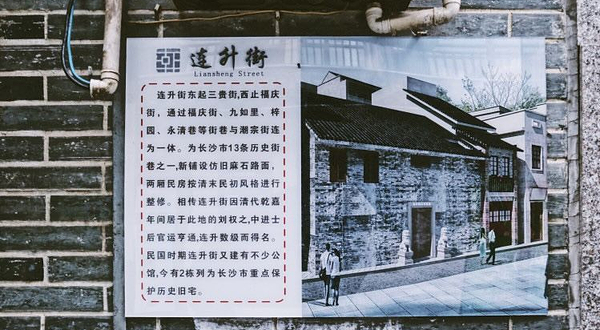 连升街
Liansheng Street
连升街东起三贵街,西止福庆
街，通过福庆街、九如里、梓
园、永清巷等街巷与潮宗街连
为一体。为长沙市13条历史街
巷之一,新铺设仿旧麻石路面，
两厢民房按清末民初风格进行
整修。相传连升街因清代乾嘉
年间居于此地的刘权之,中进士
后官运亨通,连升数级而得名。
民国时期连升街又建有不少公
馆,今有2栋列为长沙市重点保
护历史旧宅。